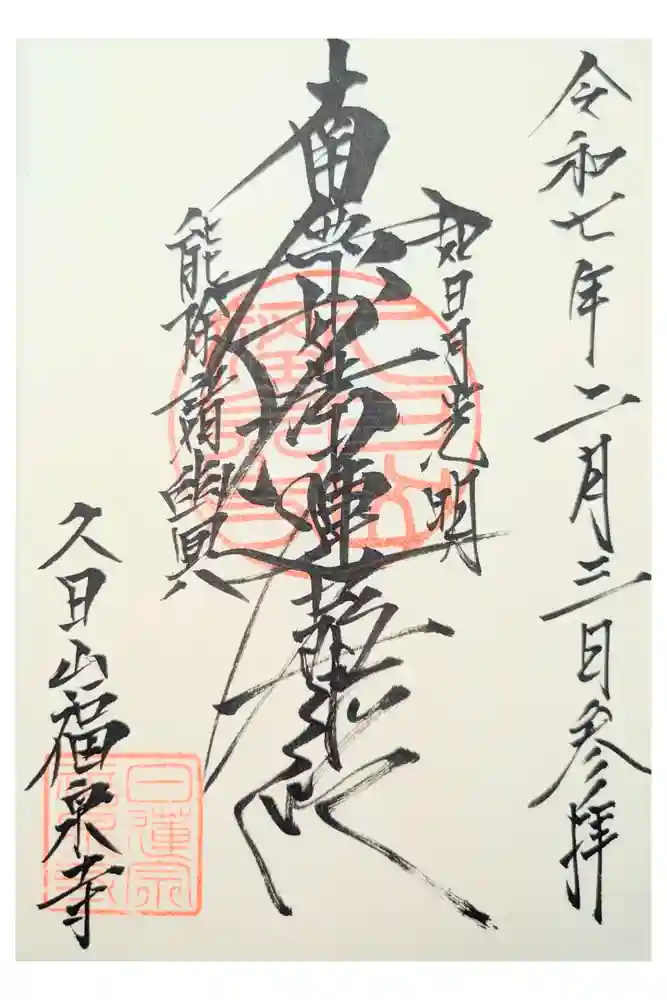 令和七年二月三日参拝
如日月光明
南無妙法蓮華経
能除諸幽冥
久日山福泉寺
日蓮宗
福泉寺